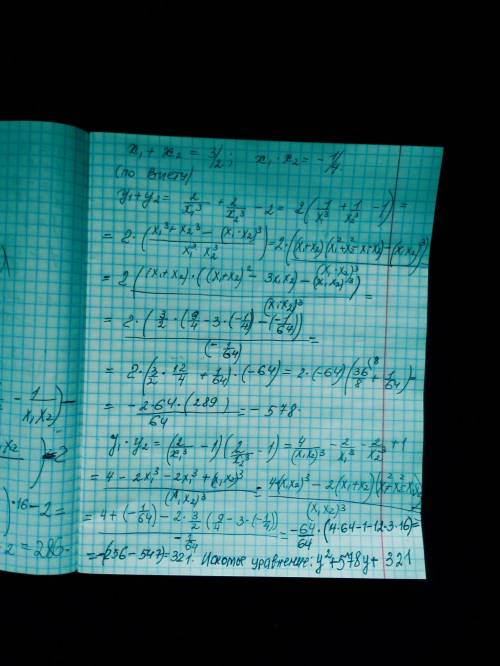 x₁ + x₂ = 3/2; x₁ · x₂ = -1/4
(по Виету)
y₁+y₂ = 2/x₁³ + 2/x₂³ - 2 = 2(1/x₁³ + 1/x₂³ - 1) =
= 2·((x₁³+x₂³ - (x₁·x₂)³)/(x₁³x₂³)) = 2·((x₁+x₂)(x₁²+x₂²-x₁x₂)-(x₁x₂)³)/(x₁·x₂)³
= 2((x₁+x₂)·((x₁+x₂)² - 3x₁x₂)-(x₁x₂)³)/(x₁x₂)³ =
= 2·(3/2·(9/4-3·(-1/4)-(-1/64)))/(-1/64) =
= 2·(3/2·12/4 + 1/64)·(-64) = 2·(-64)(36/8 + 1/64)
= -2·64·(289)/64 = -578
y₁·y₂ = (2/x₁³ - 1)(2/x₂³ - 1) = 4/(x₁x₂)³ - 2/x₁³ - 2/x₂³ + 1
= (4-2x₁³-2x₂³+(x₁x₂)³)/(x₁x₂)³ = 4(x₁x₂)³-2(x₁+x₂)(x₁²+x₂²-x₁x₂)/(x₁x₂)³
= (4+(-1/64)-2·3/2(9/4-3·(-1/4)))/(-1/64) = -64/64·(4·64-1-12·3·16)=
=-(256-547)=321. Искомое уравнение: y²+578y+321
- 1/(x₁x₂))-
)-2
)·16-2=
2=286-